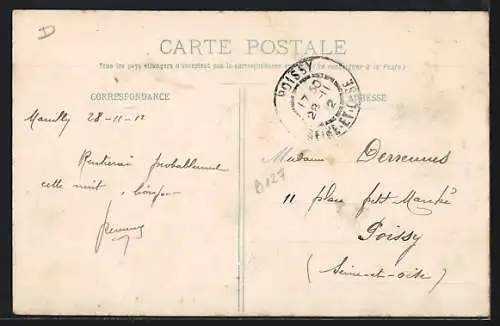 D
CARTE POSTALE
Tous les pays étrangers n'acceptent pas la correspondance à la Poste)
CORRESPONDANCE
ADRESSE
POISSY
17 50
28 -11
12
SEINE-ET-OISE
28-11-12
Rentrerai probablement
cette nuit, bonjour
Madame Derrennes
B127
11 place petit Marché
Poissy
(Seine-et-Oise)